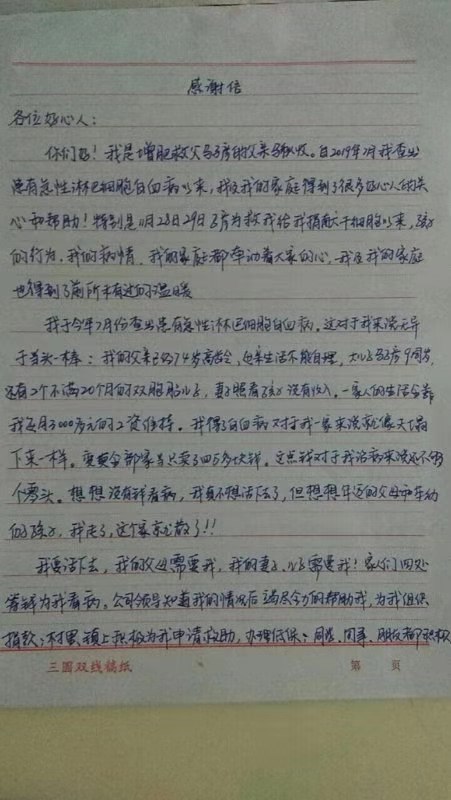 感谢信
各位好心人：
你们好！我是增肥救父马子房的父亲马秋收。自2019年7月我查出
患有急性淋巴细胞白血病以来，我及我的家庭得到了很多好心人的关
心和帮助！特别是11月28日29日子房为救我给我捐献干细胞以来，孩子
的行为、我的病情、我的家庭都牵动着大家的心，我及我的家庭
也得到了前所未有过的温暖
我于今年7月份查出患有急性淋巴细胞白血病，这对于我来说无异
于当头一棒：我的父亲已经74岁高龄，生活不能自理，大儿子马子房9周岁，
还有2个不满20个月的双胞胎儿子，妻子照看孩子没有收入。一家人的生活全靠
我每月3000多元的工资维持。我得了白血病对于我一家来说就像天塌
下来一样。变卖全部家当只卖了四五万块钱。这点钱对于我治病来说还不够
个零头。想想没有钱看病，我真不想活下去了，但想想年迈的父母和年幼
的孩子，我走了，这个家就散了!!
我要活下去，我的父母需要我，我的妻子、儿子需要我！家人们四处
筹钱为我看病。公司领导知道我的情况后竭尽全力的帮助我，为我组织
捐款；村里镇上积极为我申请救助，办理低保；同学、同事、朋友都积极
三圆双线稿纸 第 页